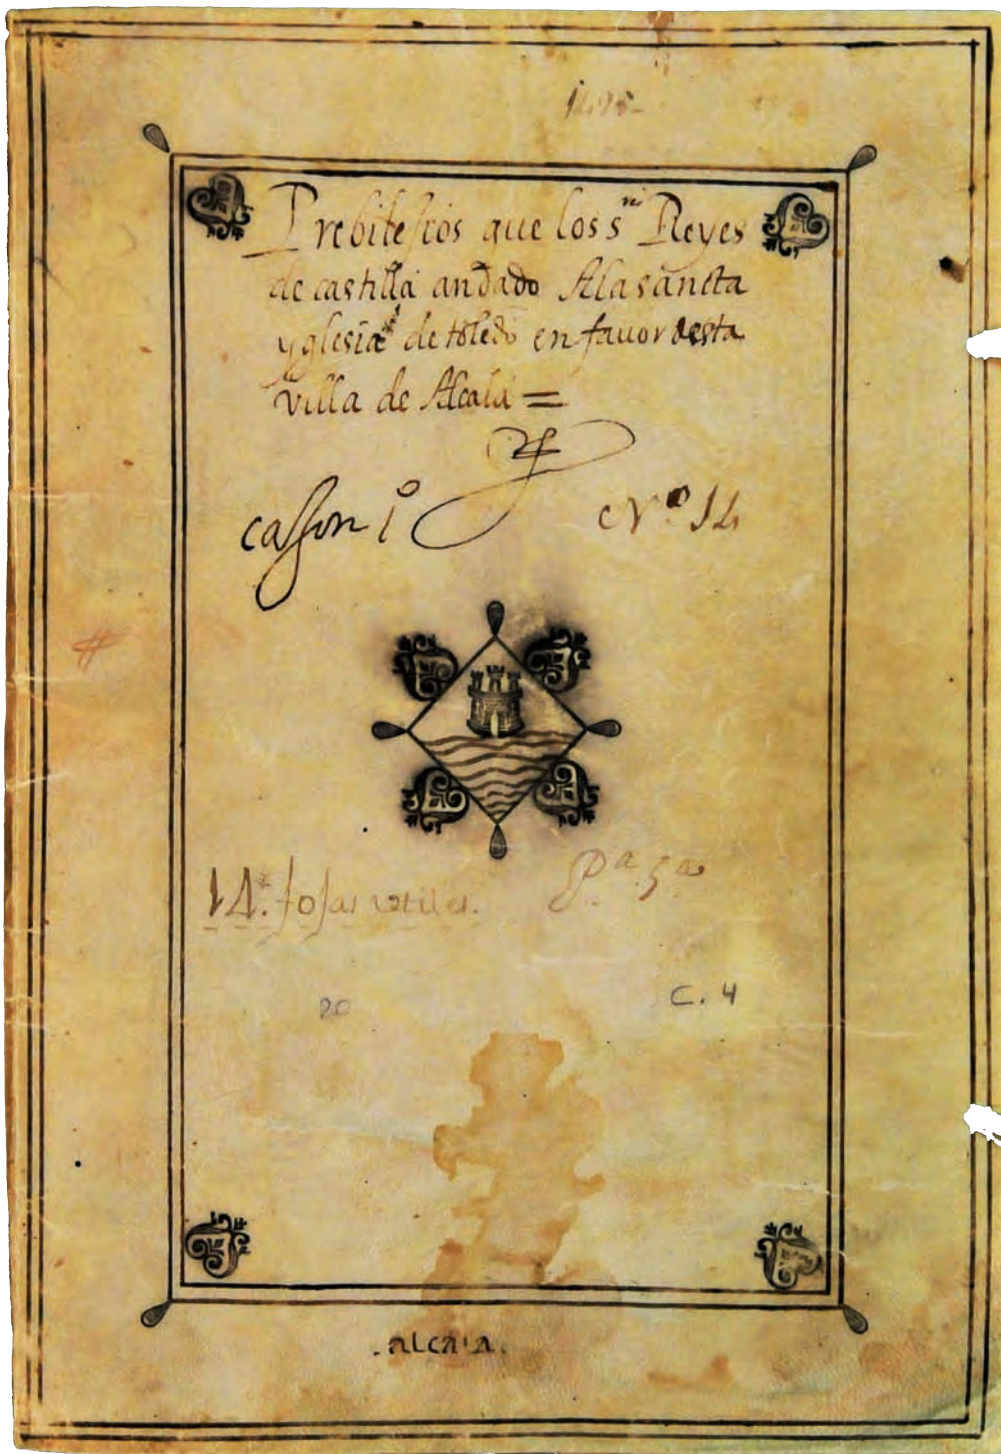 Prebilesios que los s.res Reyes
de castilla an dado A la sancta
yglesia de toledo en favor desta
villa de Alcala =
caxon 1º Nº 14
14. fojas utiles. Pª 5ª
20 C. 4
.alcala.